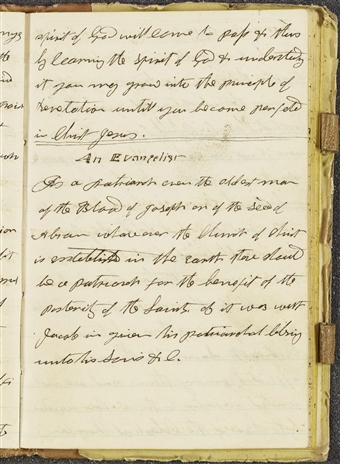 spirit of God will come to pass & thus
by learning the spirit of God & understanding
it you may grow into the principle of
Revelation until you become perfect
in Christ Jesus.
An Evangelist
Is a patriarch even the oldest man
of the Blood of Joseph or of the seed
Abram wharever the Church of Christ
is established in the earth there should
be a patriarch for the benefit of the
Posterity of the Saints as it was with
Jacob in given his patriarchal blessing
unto his Sons &C.